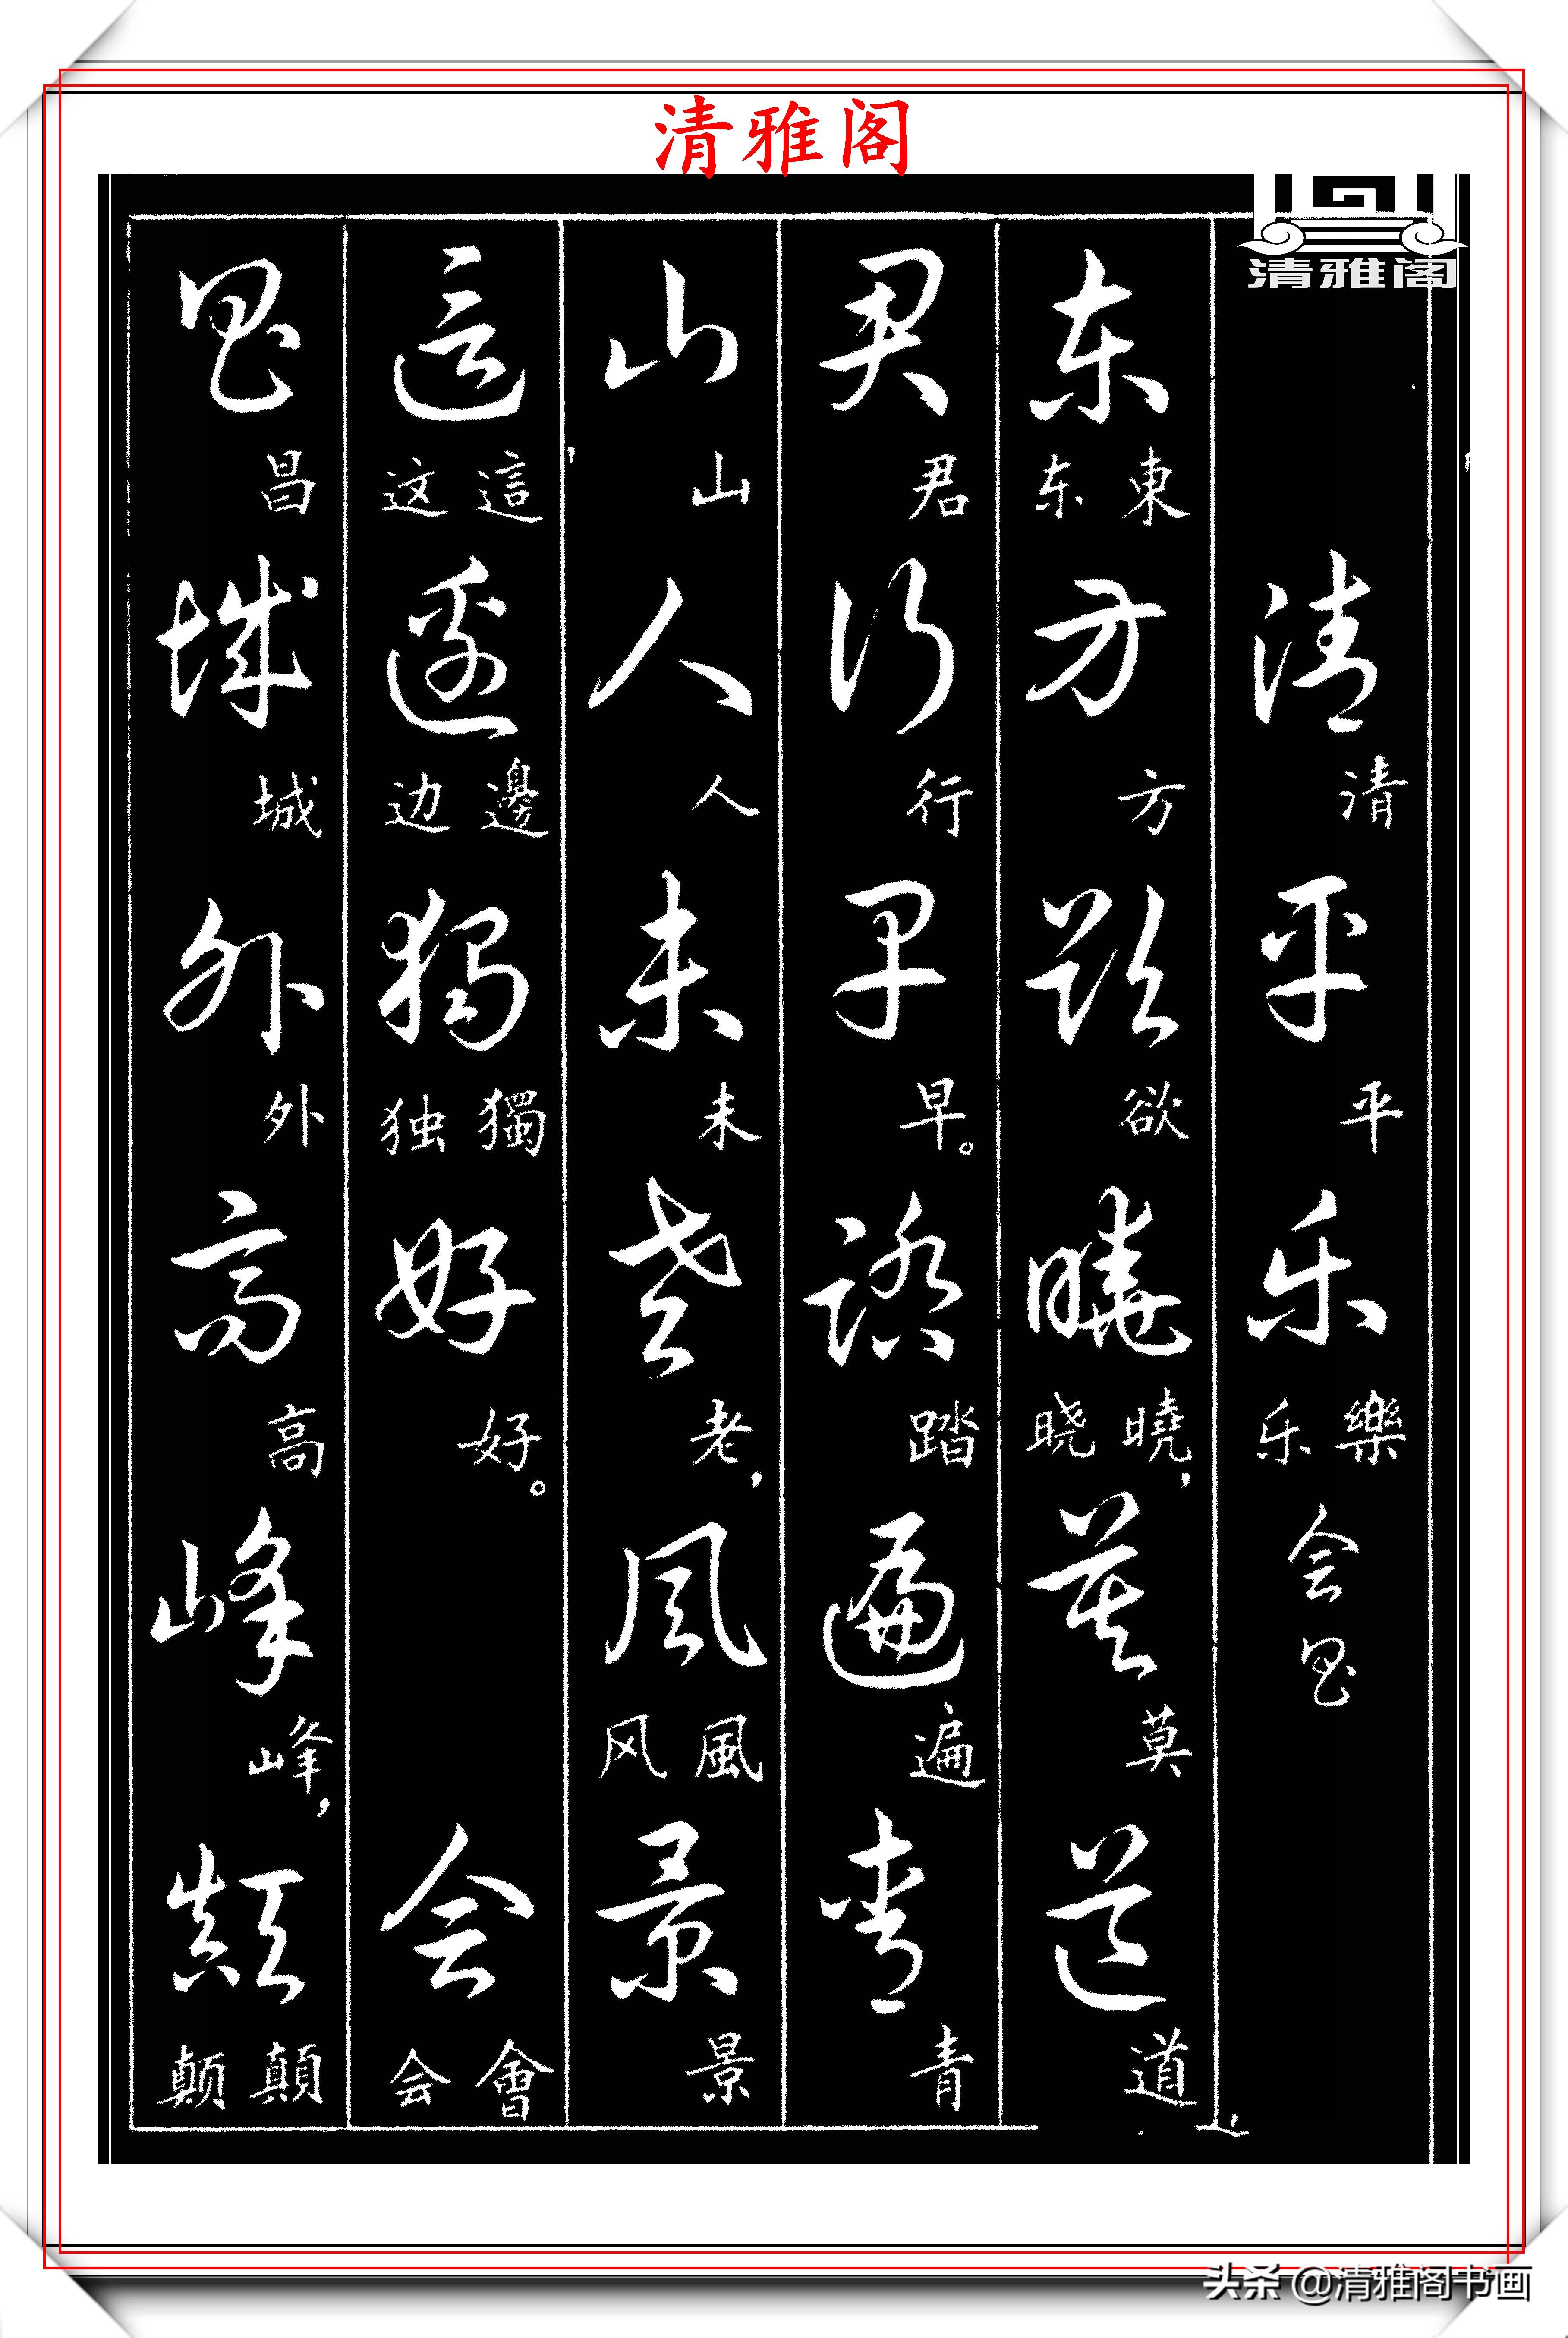 清雅阁
清雅阁
清清平平乐樂乐会昌
东東东方方欲欲曉曉，晓莫莫道道
君君行行早早。踏踏遍遍青青
山山人人未未老老，風風风景景
這這这邊邊边獨獨独好好。会會会
昌昌城城外外高高峰峰，顛顛颠
头条 @清雅阁书画